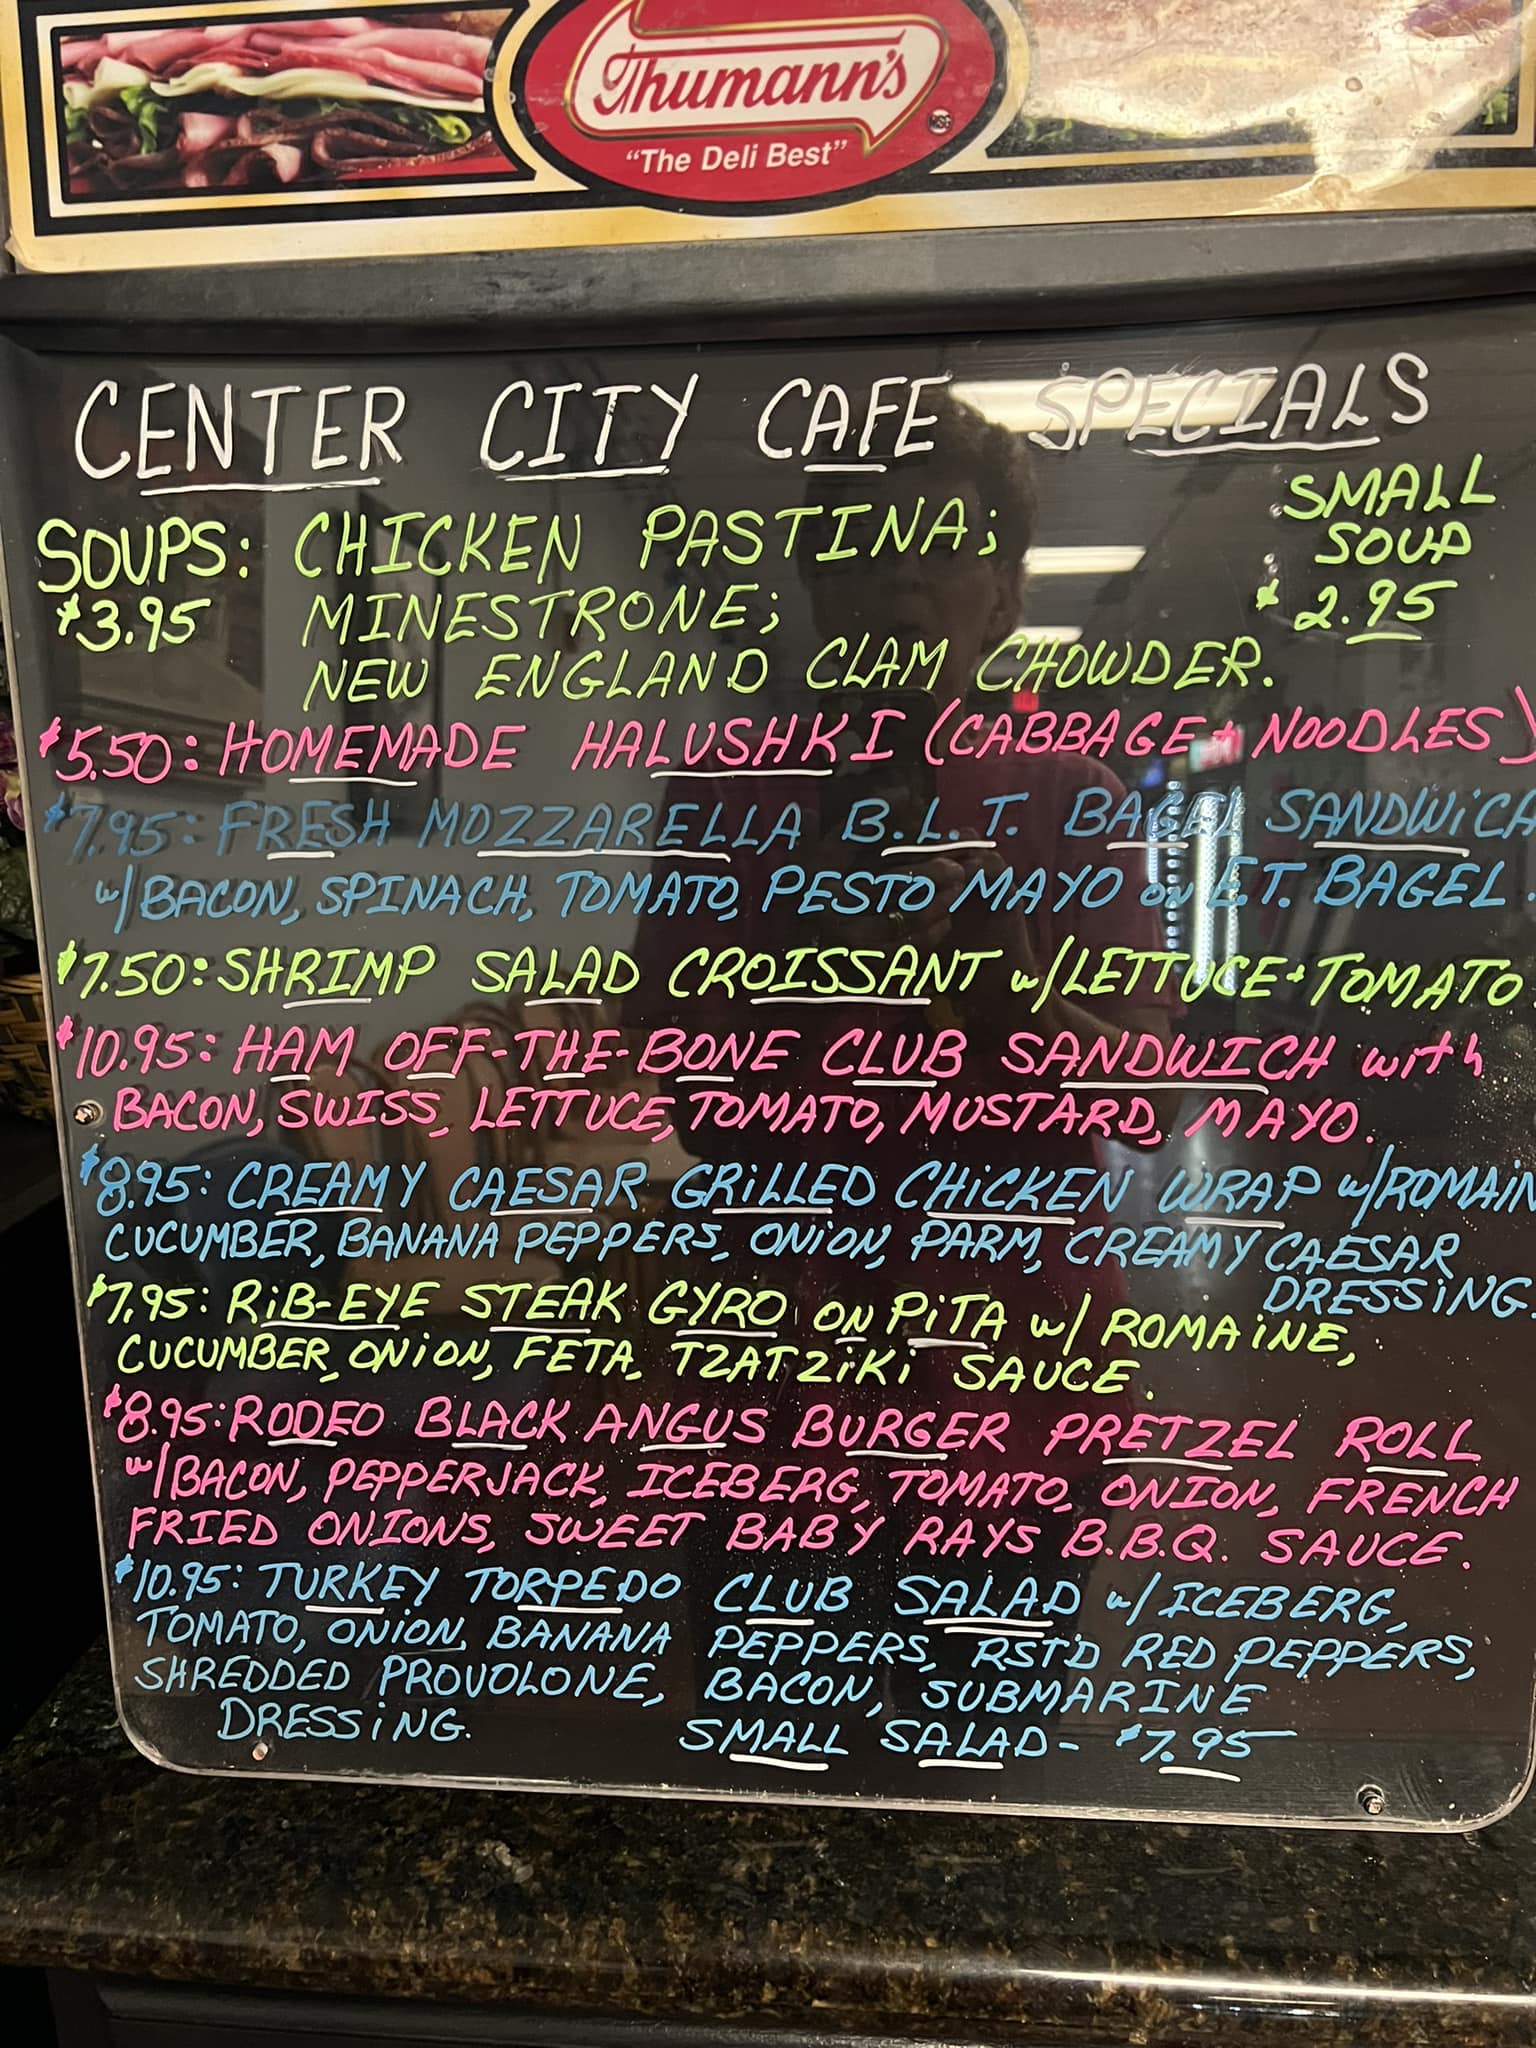 Thumann's
"The Deli Best"
CENTER CITY CAFE SPECIALS
SOUPS: CHICKEN PASTINA;
$3.95 MINESTRONE;
NEW ENGLAND CLAM CHOWDER.
SMALL
SOUP
$2.95
$5.50: HOMEMADE HALUSHKI (CABBAGE + NOODLES)
$7.95: FRESH MOZZARELLA B.L.T. BAGEL SANDWICH
w/BACON, SPINACH, TOMATO, PESTO MAYO ON E.T. BAGEL
$7.50: SHRIMP SALAD CROISSANT w/LETTUCE + TOMATO
$10.95: HAM OFF-THE-BONE CLUB SANDWICH with
BACON, SWISS, LETTUCE, TOMATO, MUSTARD, MAYO.
$8.95: CREAMY CAESAR GRILLED CHICKEN WRAP w/ROMAIN
CUCUMBER, BANANA PEPPERS, ONION, PARM, CREAMY CAESAR
DRESSING.
$7.95: RIB-EYE STEAK GYRO ON PITA w/ ROMAINE,
CUCUMBER, ONION, FETA, TZATZIKI SAUCE.
$8.95: RODEO BLACK ANGUS BURGER PRETZEL ROLL
w/BACON, PEPPERJACK, ICEBERG, TOMATO, ONION, FRENCH
FRIED ONIONS, SWEET BABY RAYS B.B.Q. SAUCE.
$10.95: TURKEY TORPEDO CLUB SALAD w/ICEBERG,
TOMATO, ONION, BANANA PEPPERS, RST'D RED PEPPERS,
SHREDDED PROVOLONE, BACON, SUBMARINE
DRESSING. SMALL SALAD- $7.95